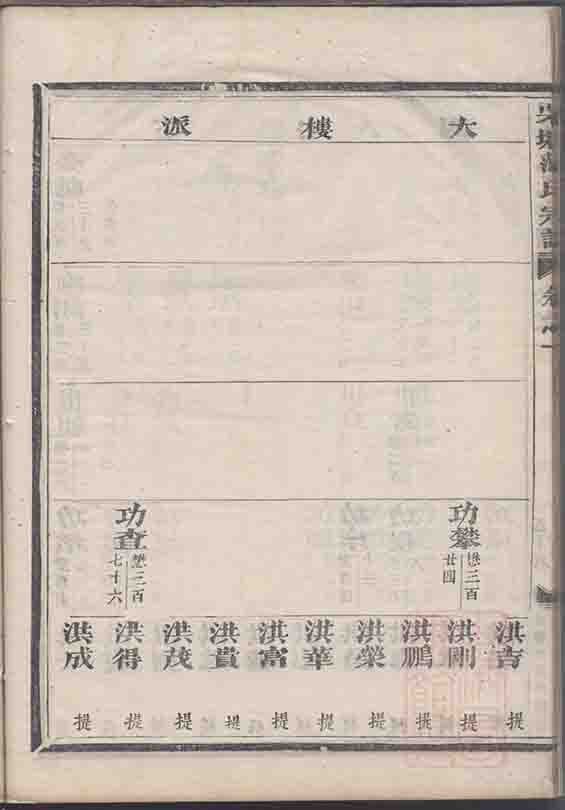 大樓派
功鏊
懋三百
廿四
功查
懋三百
七十六
洪吉
提
洪剛
提
洪鵬
提
洪榮
提
洪華
提
洪富
提
洪貴
提
洪茂
提
洪得
提
洪成
提